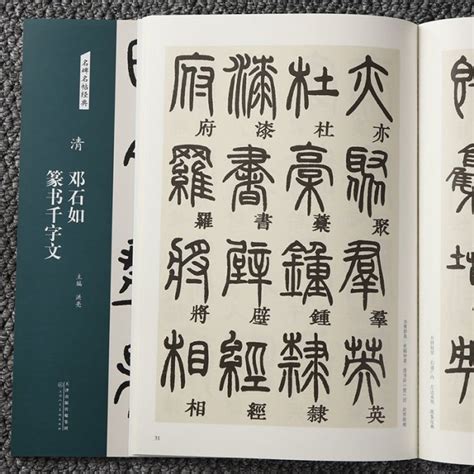 名碑名帖经典
清
邓石如
篆书千字文
主编 洪亮
亦聚羣英
杜藁鍾隸
漆書壁經
府羅將相
31